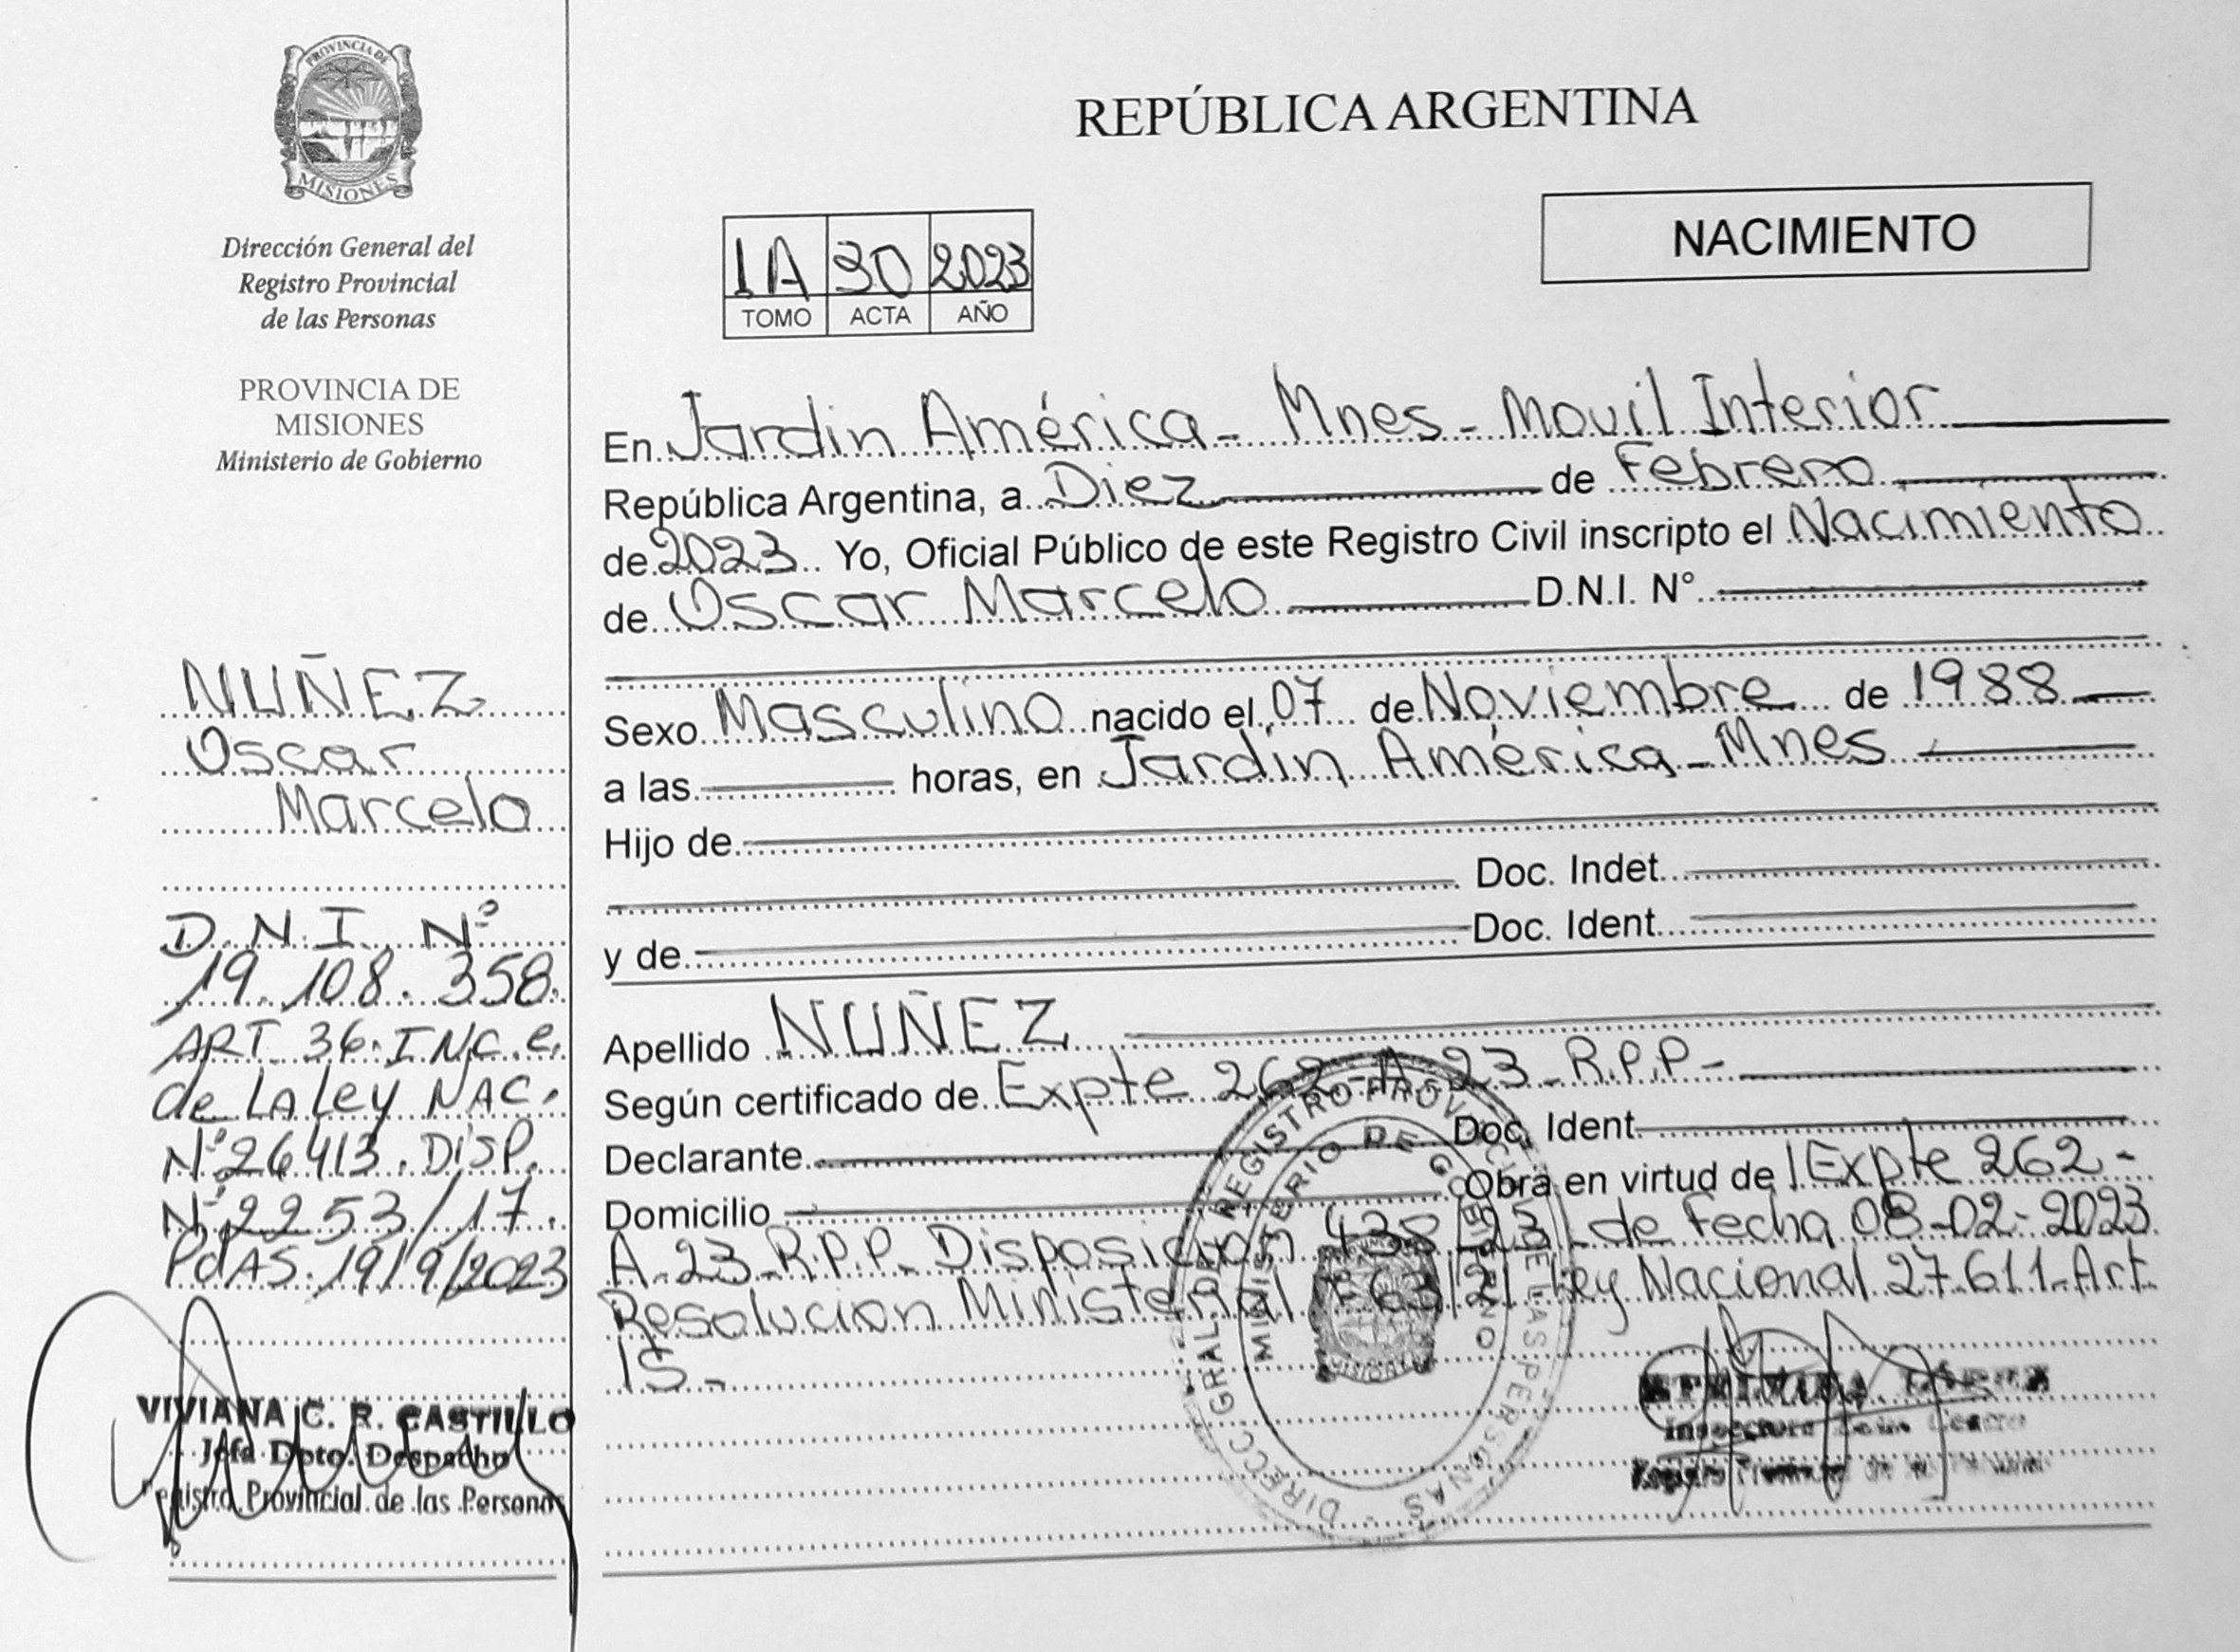 PROVINCIA DE
MISIONES
Dirección General del
Registro Provincial
de las Personas
PROVINCIA DE
MISIONES
Ministerio de Gobierno
NUÑEZ
Oscar
Marcelo
D.N.I. Nº
19.108.358.
ART. 36. INC. e.
de LA Ley NAC.
Nº 26413. DISP.
Nº 2253/17.
PdAS. 19/9/2023
VIVIANA C. R. CASTILLO
Jefa Dpto. Despacho
Registro Provincial de las Personas
REPÚBLICA ARGENTINA
NACIMIENTO
1A 30 2023
TOMO ACTA AÑO
En Jardin América - Mnes - Movil Interior
República Argentina, a Diez de Febrero
de 2023 Yo, Oficial Público de este Registro Civil inscripto el Nacimiento
de Oscar Marcelo D.N.I. N°
Sexo Masculino nacido el 07 de Noviembre de 1988
a las horas, en Jardín América - Mnes
Hijo de
Doc. Indet.
y de Doc. Ident.
Apellido NUÑEZ
Según certificado de Expte 262-A-23-R.P.P-
Declarante Doc. Ident.
Domicilio Obra en virtud de Expte 262-
A-23-R.P.P- Disposición /23 - de Fecha 08-02-2023
Resolucion Ministerial Ley Nacional 27.611-Art
15-
DIRECC. GRAL. DEL REGISTRO PROVINCIAL DE LAS PERSONAS
MINISTERIO DE GOBIERNO
MISIONES
Inspectora Zona Centro